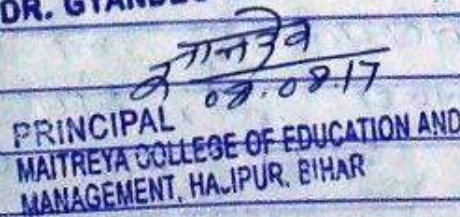 DR.
ज्ञानदेव
08.08.17
PRINCIPAL
MAITREYA COLLEGE OF EDUCATION AND
MANAGEMENT, HAJIPUR, BIHAR